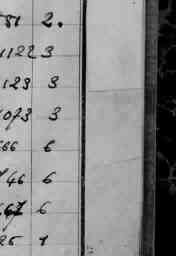 781 2.
1122 3
1123 3
1073 3
66 6
746 6
67 6
25 1